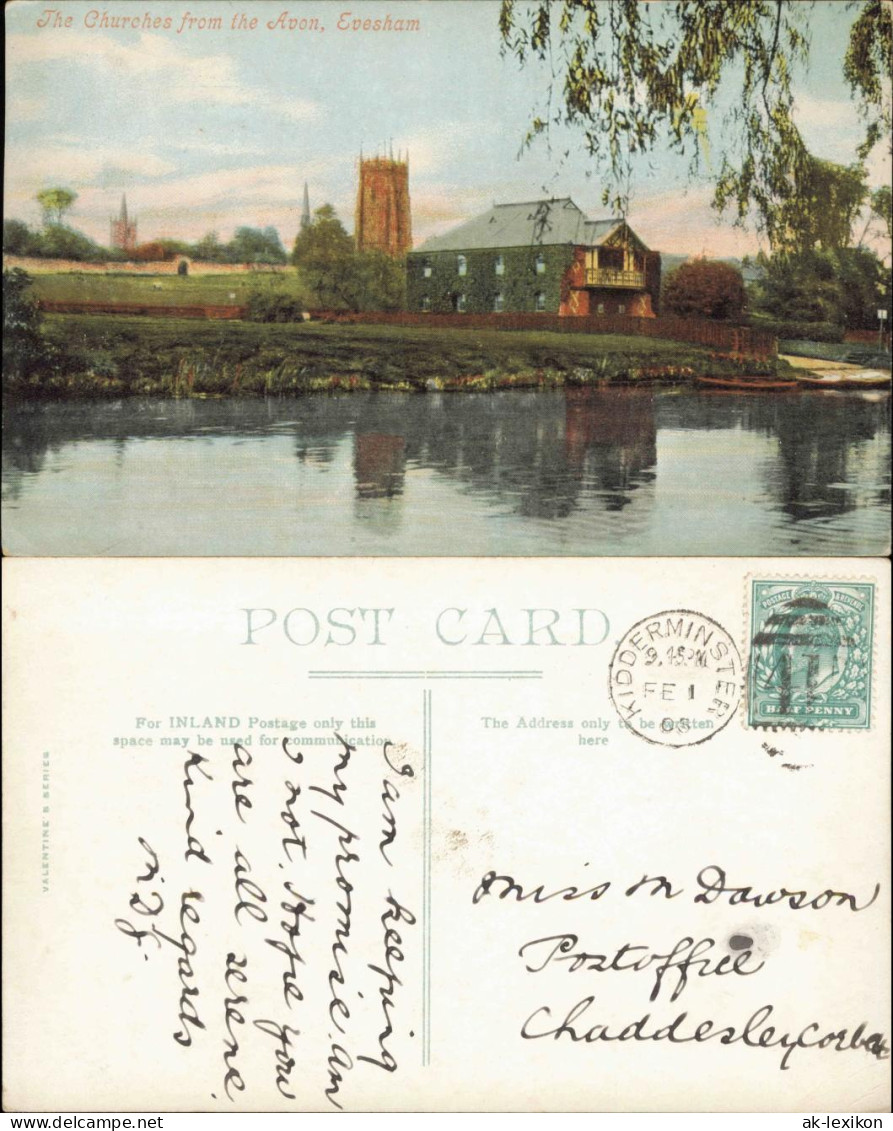 The Churches from the Avon, Evesham
POST CARD.
For INLAND Postage only this
space may be used for communication
The Address only to be written
here
KIDDERMINSTER
9.45PM
FE 1
POSTAGE & REVENUE
HALF PENNY
VALENTINE'S SERIES
I am keeping
my promise. Am
I not. Hope you
are all serene.
Kind regards
Miss M Dawson
Postoffice
Chaddesley Corbett
www.delcampe.net
ak-lexikon